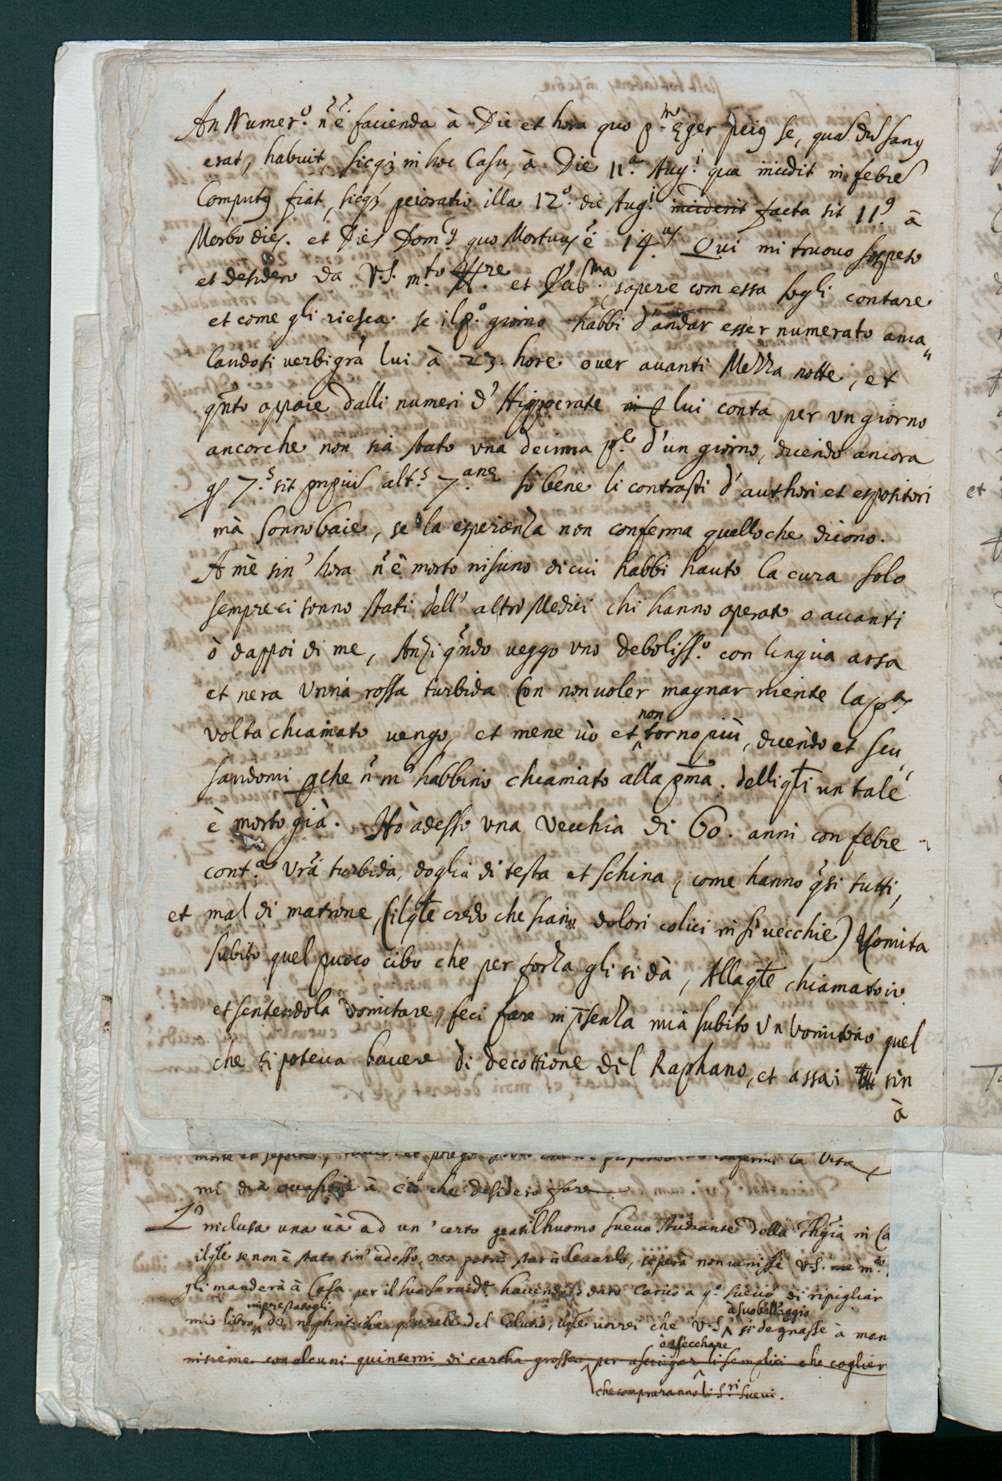 An Numer.º n̄ è facienda à Die et hora quo p.mº Eger peiꝰ se, quaſ dū sanꝰ
erat, habuit, sicqꝫ in hoc Casu, à Die 11.ª Augⁱ qua incidit in febrē
Computꝰ fiat, sicqꝫ peioratio illa 12.º die Augⁱ inciderit facta sit 11ꝰ à
Morbo dies. et Dies Domꝰ quo Mortuus è 14.us Qui mi truovo sospeso
et desidero da V.S. m.to et sapere com essa sogli contare
et come gli riesca. se il p.º giorno habbi d'andar esser numerato amma=
landosi verbigrā lui à 23. hore over avanti Mezza notte, et
qn̄to appare dalli numeri d'Hippocrate lui conta per un giorno
ancorche non sia stato una decima p.te d'un giorno, dicendo ancora
7.ꝰ sit pnpiuſ alt.ꝰ 7.anæ sò bene li contrasti d'authori et espositori
mà sonno baie, se la esperienza non conferma quello che dicono.
A mè sin' hora n̄ è morto nisuno di cui habbi hauto la cura solo
sempre ci sonno stati dell' altri Medici chi hanno operato o avanti
ò dappoi di me, Anzi qn̄do veggo uno debolissº con lingua arsa
et nera Urina rossa turbida con non voler magnar niente la pª
volta chiamato vengo, et mene vò et non torno più, dicēdo et scu,
sandomi ꝑche n̄ m'habbino chiamato alla pma. delli qli un tale
è morto già. Hò adesso una Vecchia di 60. anni con febre
cont.ª Urā turbida, doglia di testa et schina, come hanno qsi tutti,
et mal di matrone, (il qle credo che siano dolori colici in si vecchie) Vomita
subito quel puoco cibo che per forza gli si dà, Alla qle chiamato io
et sentendola vomitare, feci fare in p̄senza mia subito un vomitorio quel
che si poteva bavere di decottione del Raphano, et assai sin
à
la Vita
mi dia occasione à ciò che desidero fare
L'inclusa una và ad un' certo gentilhuomo suevo studiante della Thgīa in Ca
il qle se non è stato sin' adesso, non potrà star à levarle, se però non venisse V.S. me m.to
gli manderà à Casa, per il suo havendo dato carico a qº suevo di ripigliar
imprestatogli à suo bell'aggio
mio libro de nephritide del Calculo, il qle vorrei che V.S. si degnasse à man
ò seccharre
insieme con alcuni quinterni di cartha grossa per asciugar li semplici che coglier
che compraranno li S.ri Suevi.